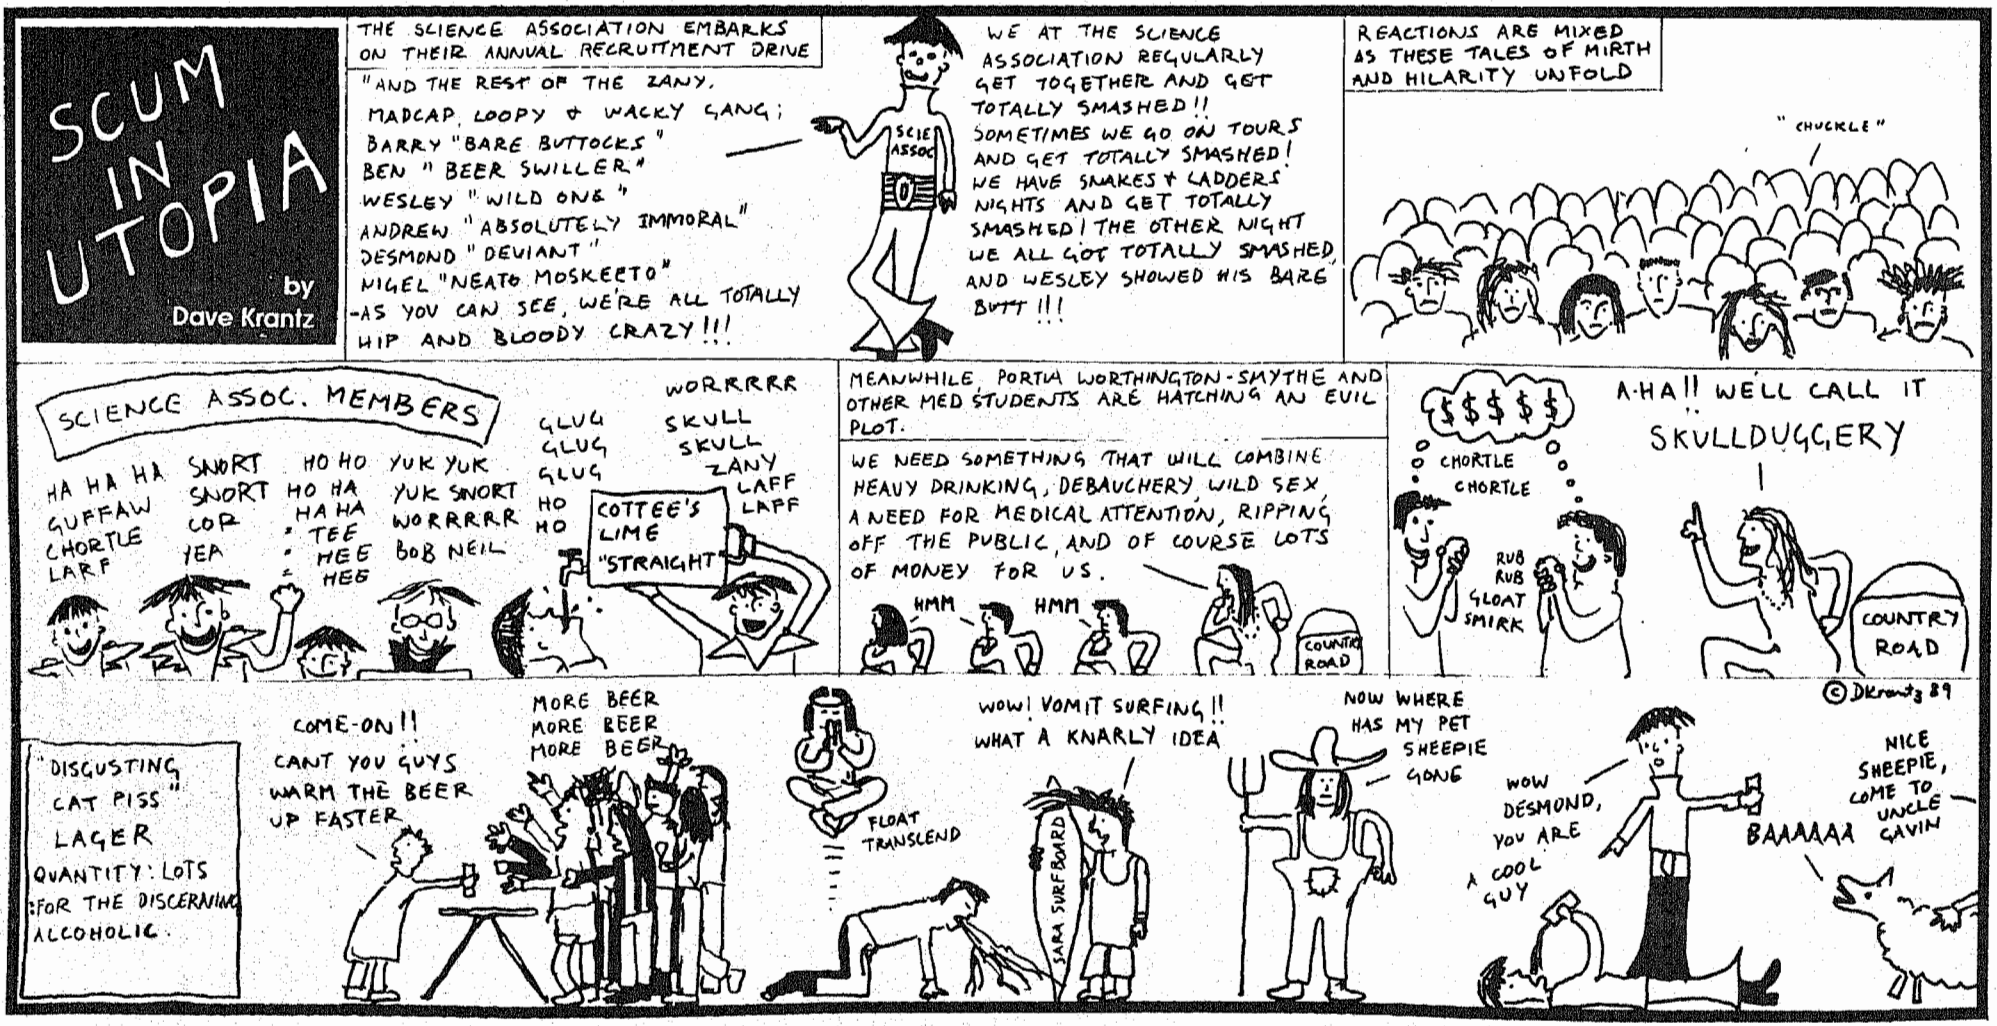 SCUM
IN
UTOPIA
by
Dave Krantz
THE SCIENCE ASSOCIATION EMBARKS
ON THEIR ANNUAL RECRUITMENT DRIVE
"AND THE REST OF THE ZANY,
MADCAP, LOOPY & WACKY GANG;
BARRY "BARE BUTTOCKS"
BEN "BEER SWILLER"
WESLEY "WILD ONE"
ANDREW "ABSOLUTELY IMMORAL"
DESMOND "DEVIANT"
NIGEL "NEATO MOSKEETO"
-AS YOU CAN SEE, WE'RE ALL TOTALLY
HIP AND BLOODY CRAZY!!!
SCIE
ASSOC
WE AT THE SCIENCE
ASSOCIATION REGULARLY
GET TOGETHER AND GET
TOTALLY SMASHED!!
SOMETIMES WE GO ON TOURS
AND GET TOTALLY SMASHED!
WE HAVE SNAKES & LADDERS
NIGHTS AND GET TOTALLY
SMASHED! THE OTHER NIGHT
WE ALL GOT TOTALLY SMASHED,
AND WESLEY SHOWED HIS BARE
BUTT!!!
REACTIONS ARE MIXED
AS THESE TALES OF MIRTH
AND HILARITY UNFOLD
"CHUCKLE"
SCIENCE ASSOC. MEMBERS
HA HA HA
GUFFAW
CHORTLE
LARF
SNORT
SNORT
COR
YEA
HO HO
HO HA
HA HA
TEE
HEE
HEE
YUK YUK
YUK SNORT
WORRRRR
BOB NEIL
GLUG
GLUG
GLUG
HO
HO
WORRRRR
SKULL
SKULL
ZANY
LAFF
LAFF
COTTEE'S
LIME
"STRAIGHT"
MEANWHILE, PORTIA WORTHINGTON-SMYTHE AND
OTHER MED STUDENTS ARE HATCHING AN EVIL
PLOT.
WE NEED SOMETHING THAT WILL COMBINE
HEAVY DRINKING, DEBAUCHERY, WILD SEX,
A NEED FOR MEDICAL ATTENTION, RIPPING
OFF THE PUBLIC, AND OF COURSE LOTS
OF MONEY FOR US.
HMM
HMM
COUNTRY
ROAD
$ $ $ $ $
CHORTLE
CHORTLE
RUB
RUB
GLOAT
SMIRK
A-HA!! WE'LL CALL IT
SKULLDUGGERY
COUNTRY
ROAD
"DISGUSTING
CAT PISS"
LAGER
QUANTITY: LOTS
:FOR THE DISCERNING
ALCOHOLIC.
COME-ON!!
CANT YOU GUYS
WARM THE BEER
UP FASTER
MORE BEER
MORE BEER
MORE BEER
FLOAT
TRANSCEND
WOW! VOMIT SURFING!!
WHAT A KNARLY IDEA
SARA SURFBOARD
NOW WHERE
HAS MY PET
SHEEPIE
GONE
WOW
DESMOND,
YOU ARE
A COOL
GUY
© DKrantz 89
BAAAAAA
NICE
SHEEPIE,
COME TO
UNCLE
GAVIN